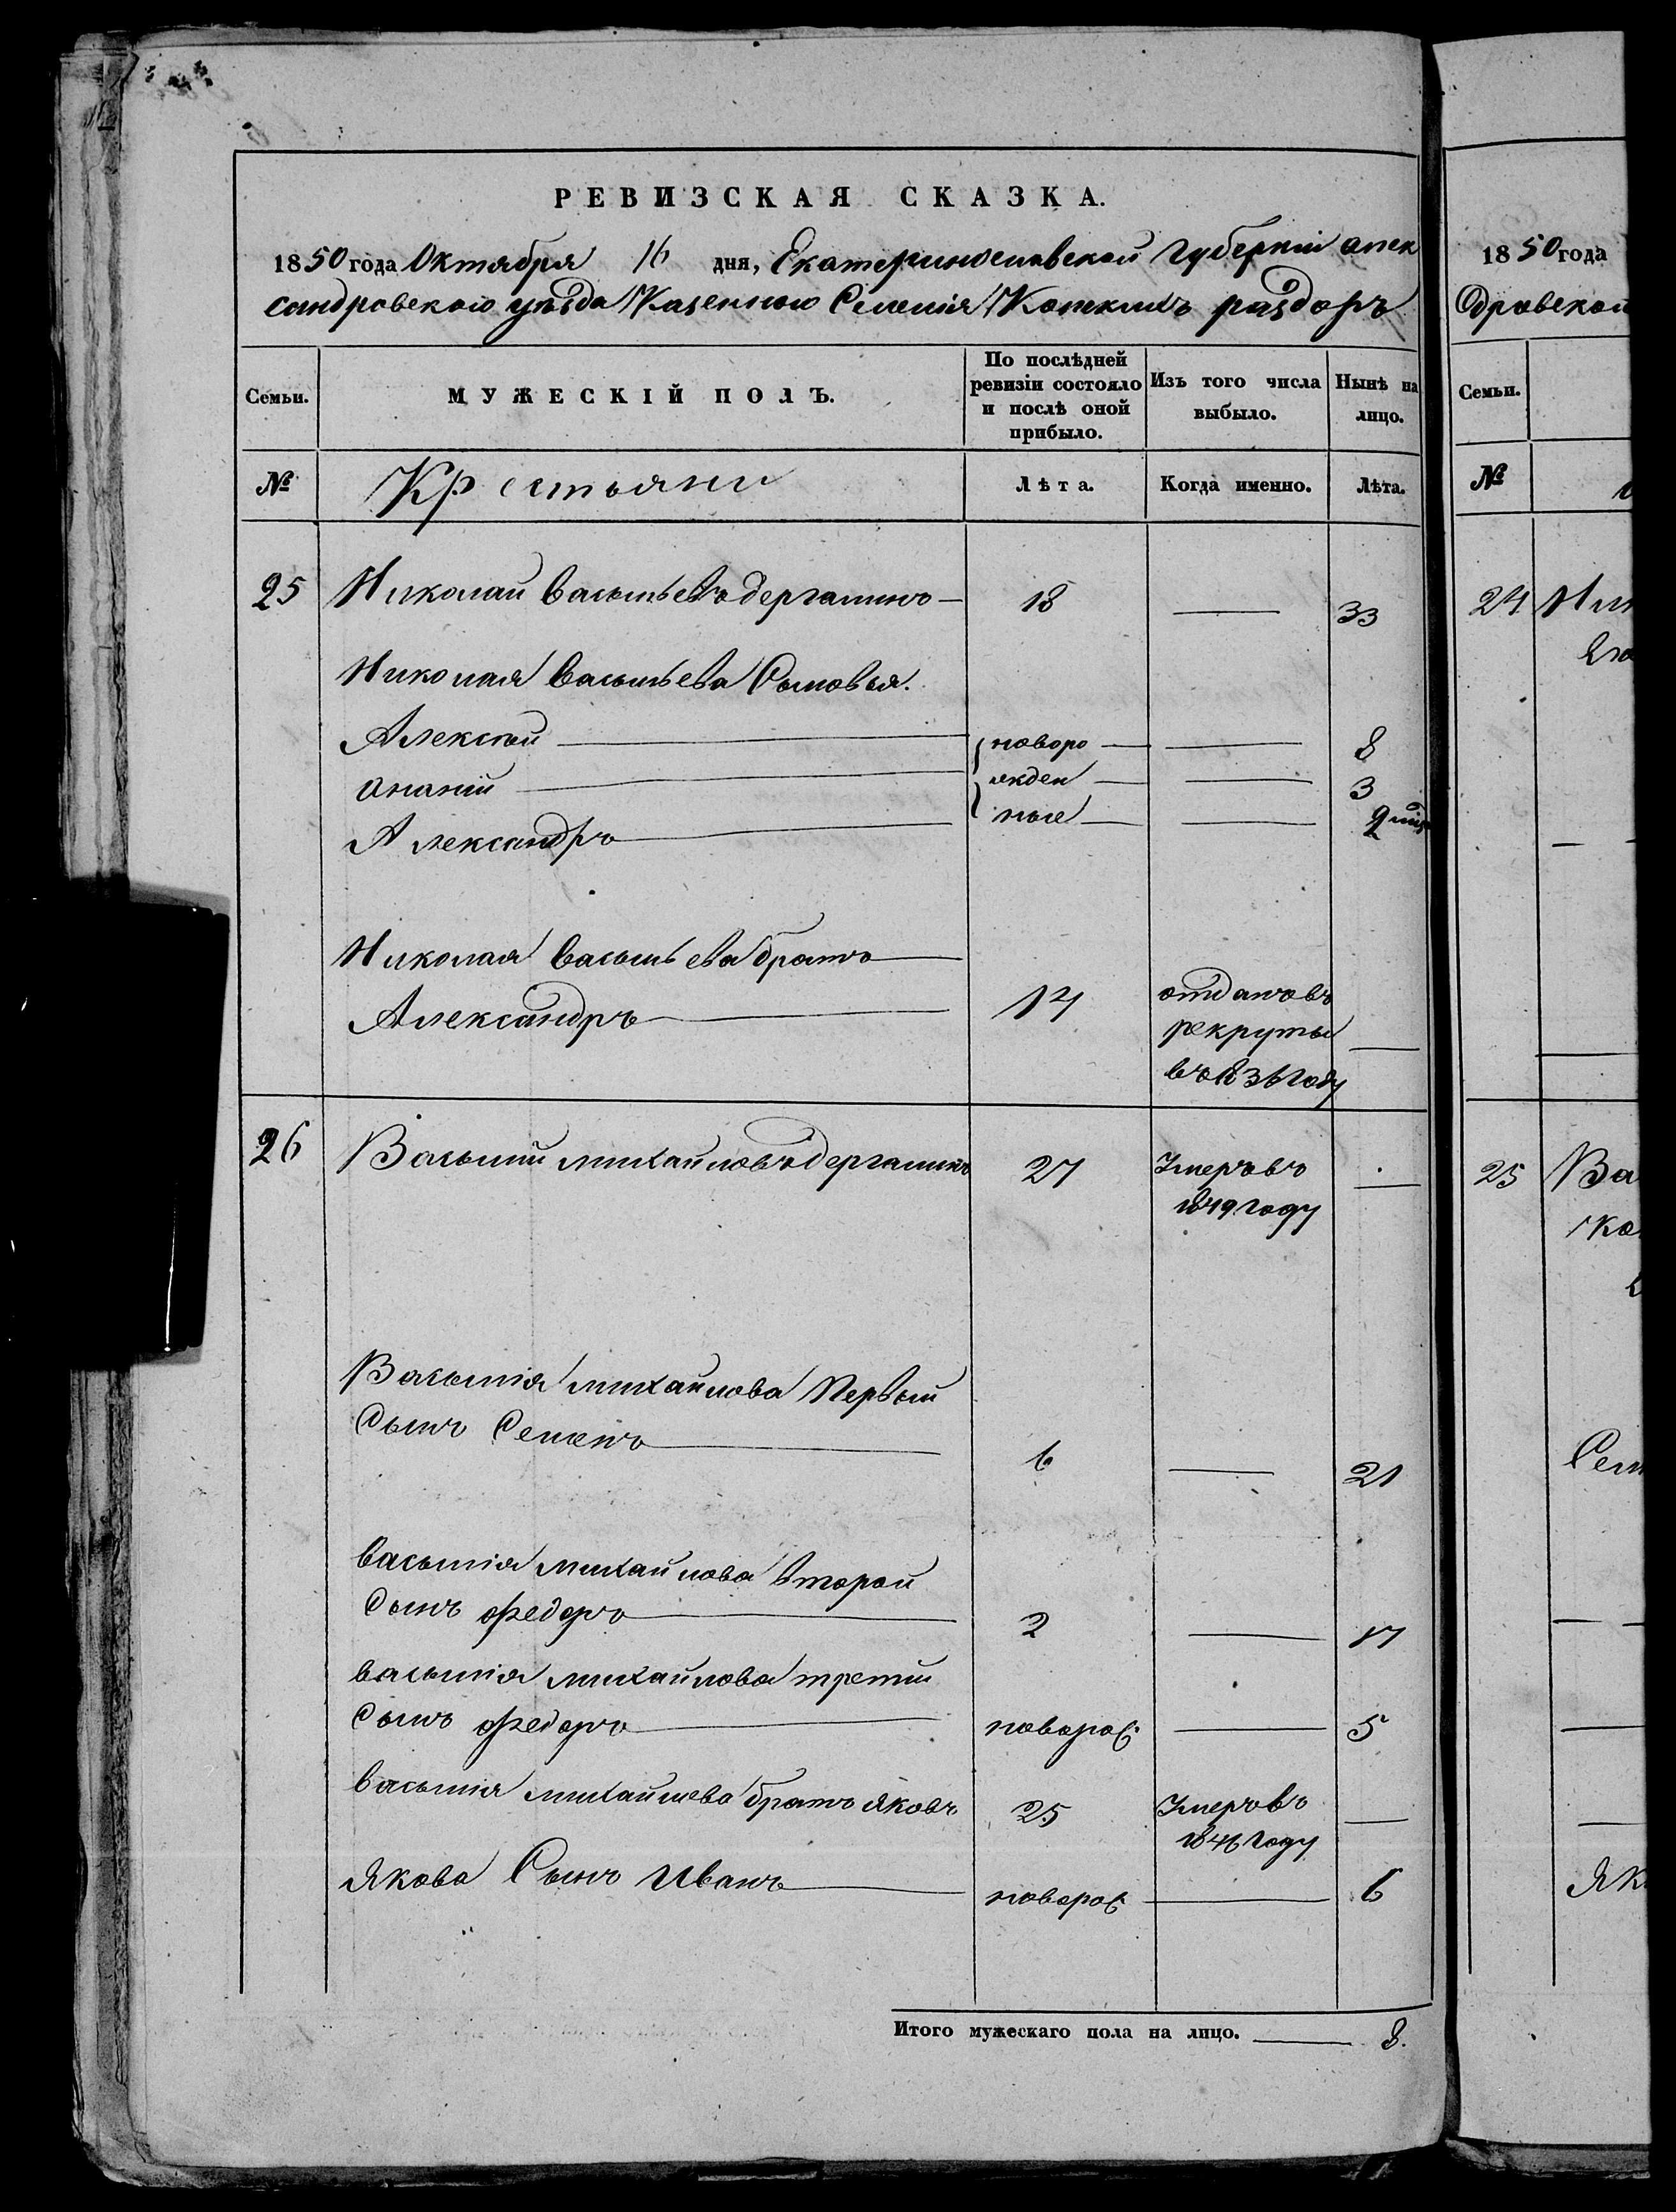 РЕВИЗСКАЯ СКАЗКА.
1850 года Октября 16 дня, Екатеринославской губерніи алек
сандровского уѣзда Казенного Селенія Конскихъ раздоръ
Семьи. МУЖЕСКІЙ ПОЛЪ. По послѣдней ревизіи состояло и послѣ оной прибыло. Изъ того числа выбыло. Ныне на лицо.
№ Крестьяни Лѣта. Когда именно. Лѣта.
25 Николай Васильевъ дергалинъ 18 — 33
Николая Васильева Сыновья.
Алексѣй — новоро — 8
Ананій — жден — 3
Александръ — ные — 9
Николая Васильева братъ
Александръ — 14 отданъ въ
рекруты —
въ 1836 году
26 Василий михайловъ дергалинъ 27 Умеръ въ —
1849 году
Василія михайлова Первый
Сынъ Семенъ — 6 — 21
Василія михайлова второй
Сынъ Федоръ — 2 — 17
василія михайлова третий
Сынъ Федоръ — новорож: — 5
василія михайлова братъ яковъ 25 Умеръ въ —
1846 году
Якова Сынъ Иванъ — новорож — 6
Итого мужескаго пола на лицо. — 8.
1850 года
дровской
Семьи.
№
24
25